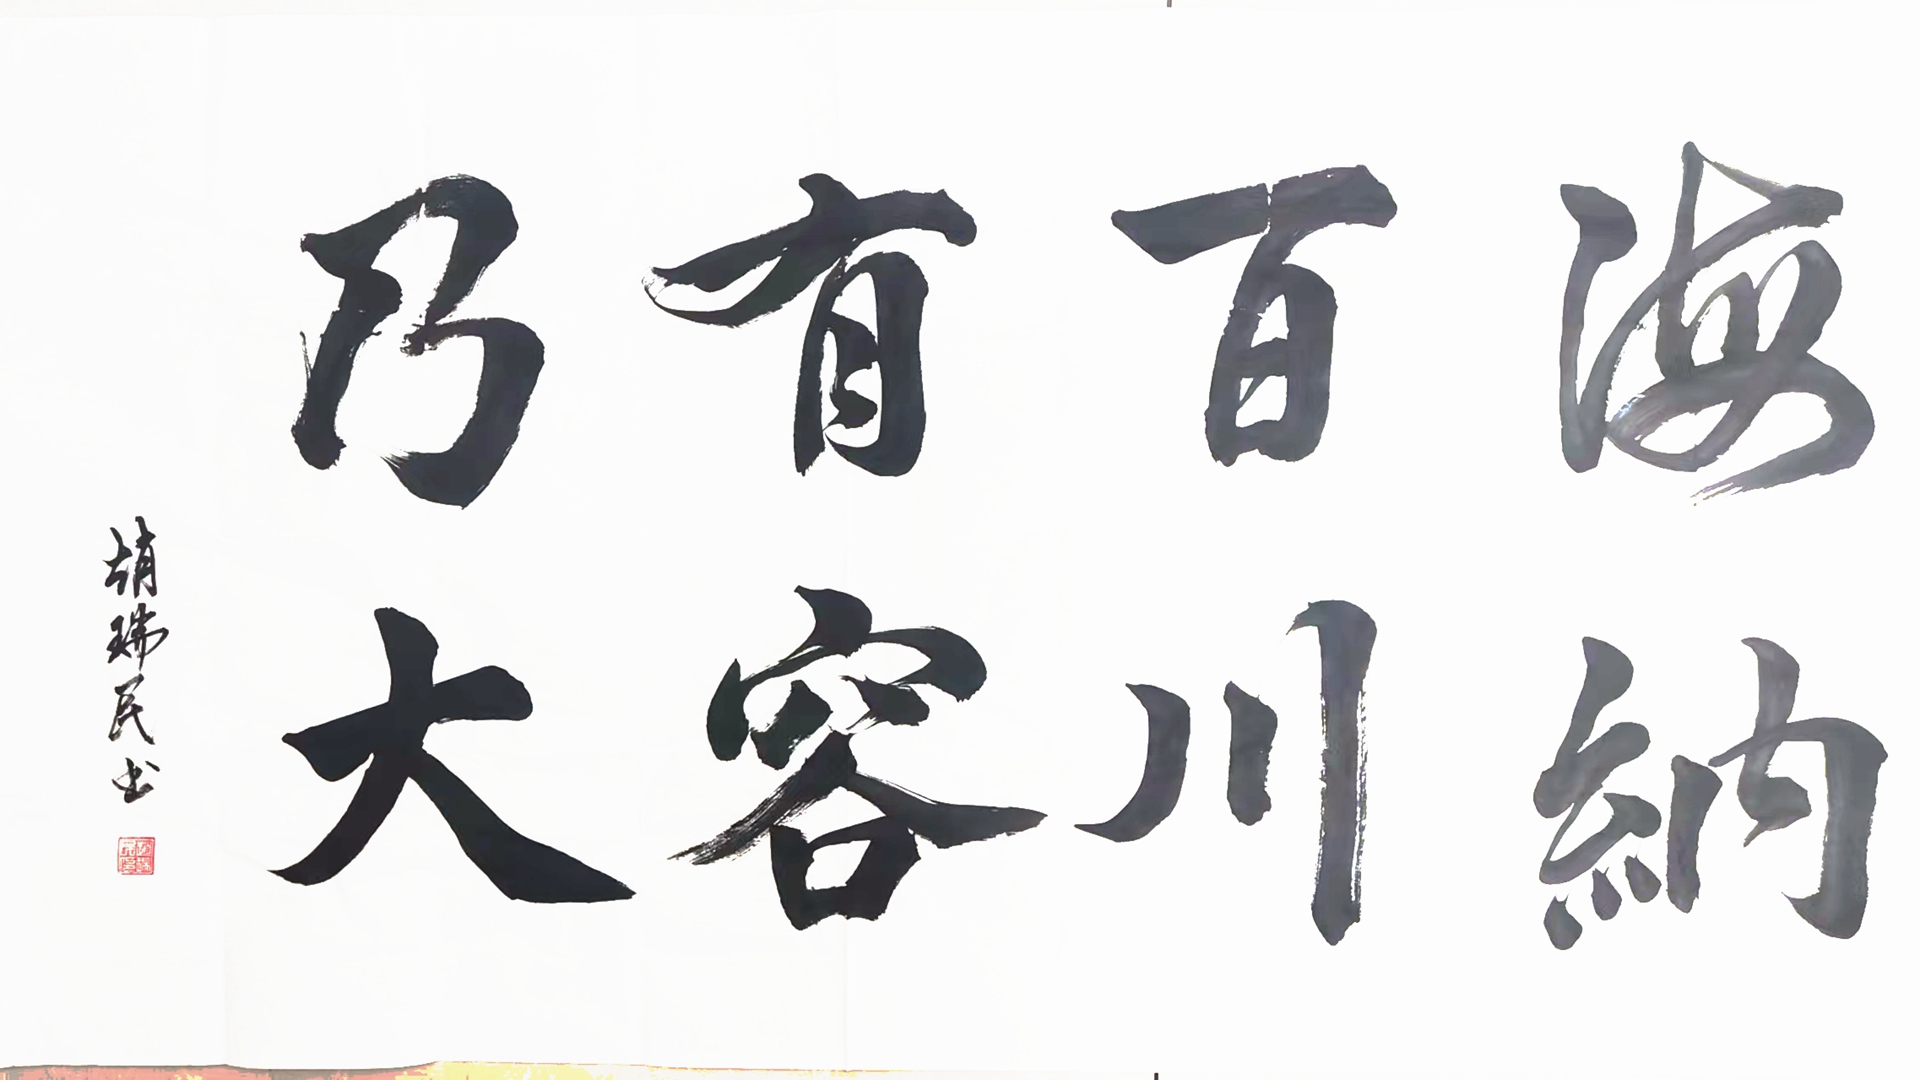 海納
百川
有容
乃大
胡瑞民书